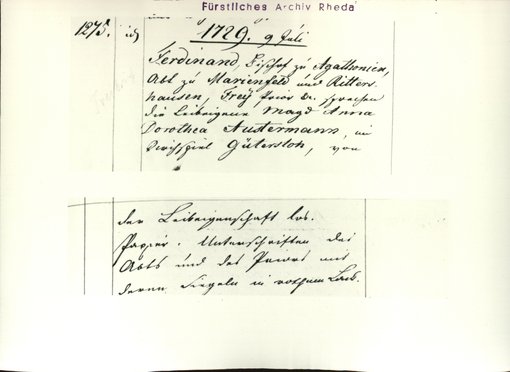 Fürstliches Archiv Rheda
1729. 9 Juli
Ferdinand, Bischof zu Agathonien,
Abt zu Marienfeld und Ritters
hausen, Frey Prior sprechen
die Leibeigene Magd Anna
Dorothea Austermann, im
Kirchspiel Gütersloh, von
der Leibeigenschaft los.
Papier. Unterschriften des
Abts und des Priors mit
deren Siegeln in rothem Lack.